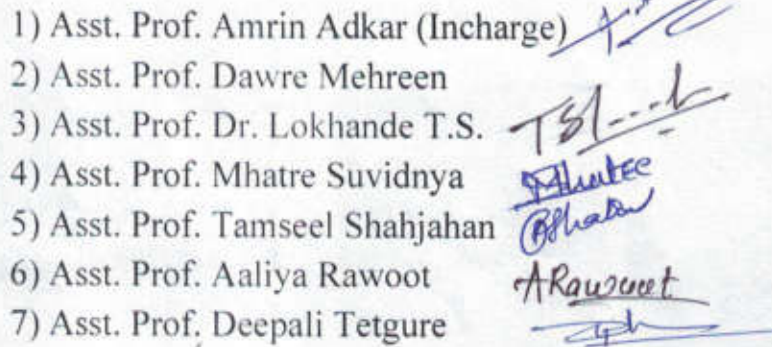 1) Asst. Prof. Amrin Adkar (Incharge)
2) Asst. Prof. Dawre Mehreen
3) Asst. Prof. Dr. Lokhande T.S.
4) Asst. Prof. Mhatre Suvidnya Mhatre
5) Asst. Prof. Tamseel Shahjahan
6) Asst. Prof. Aaliya Rawoot ARawoot
7) Asst. Prof. Deepali Tetgure